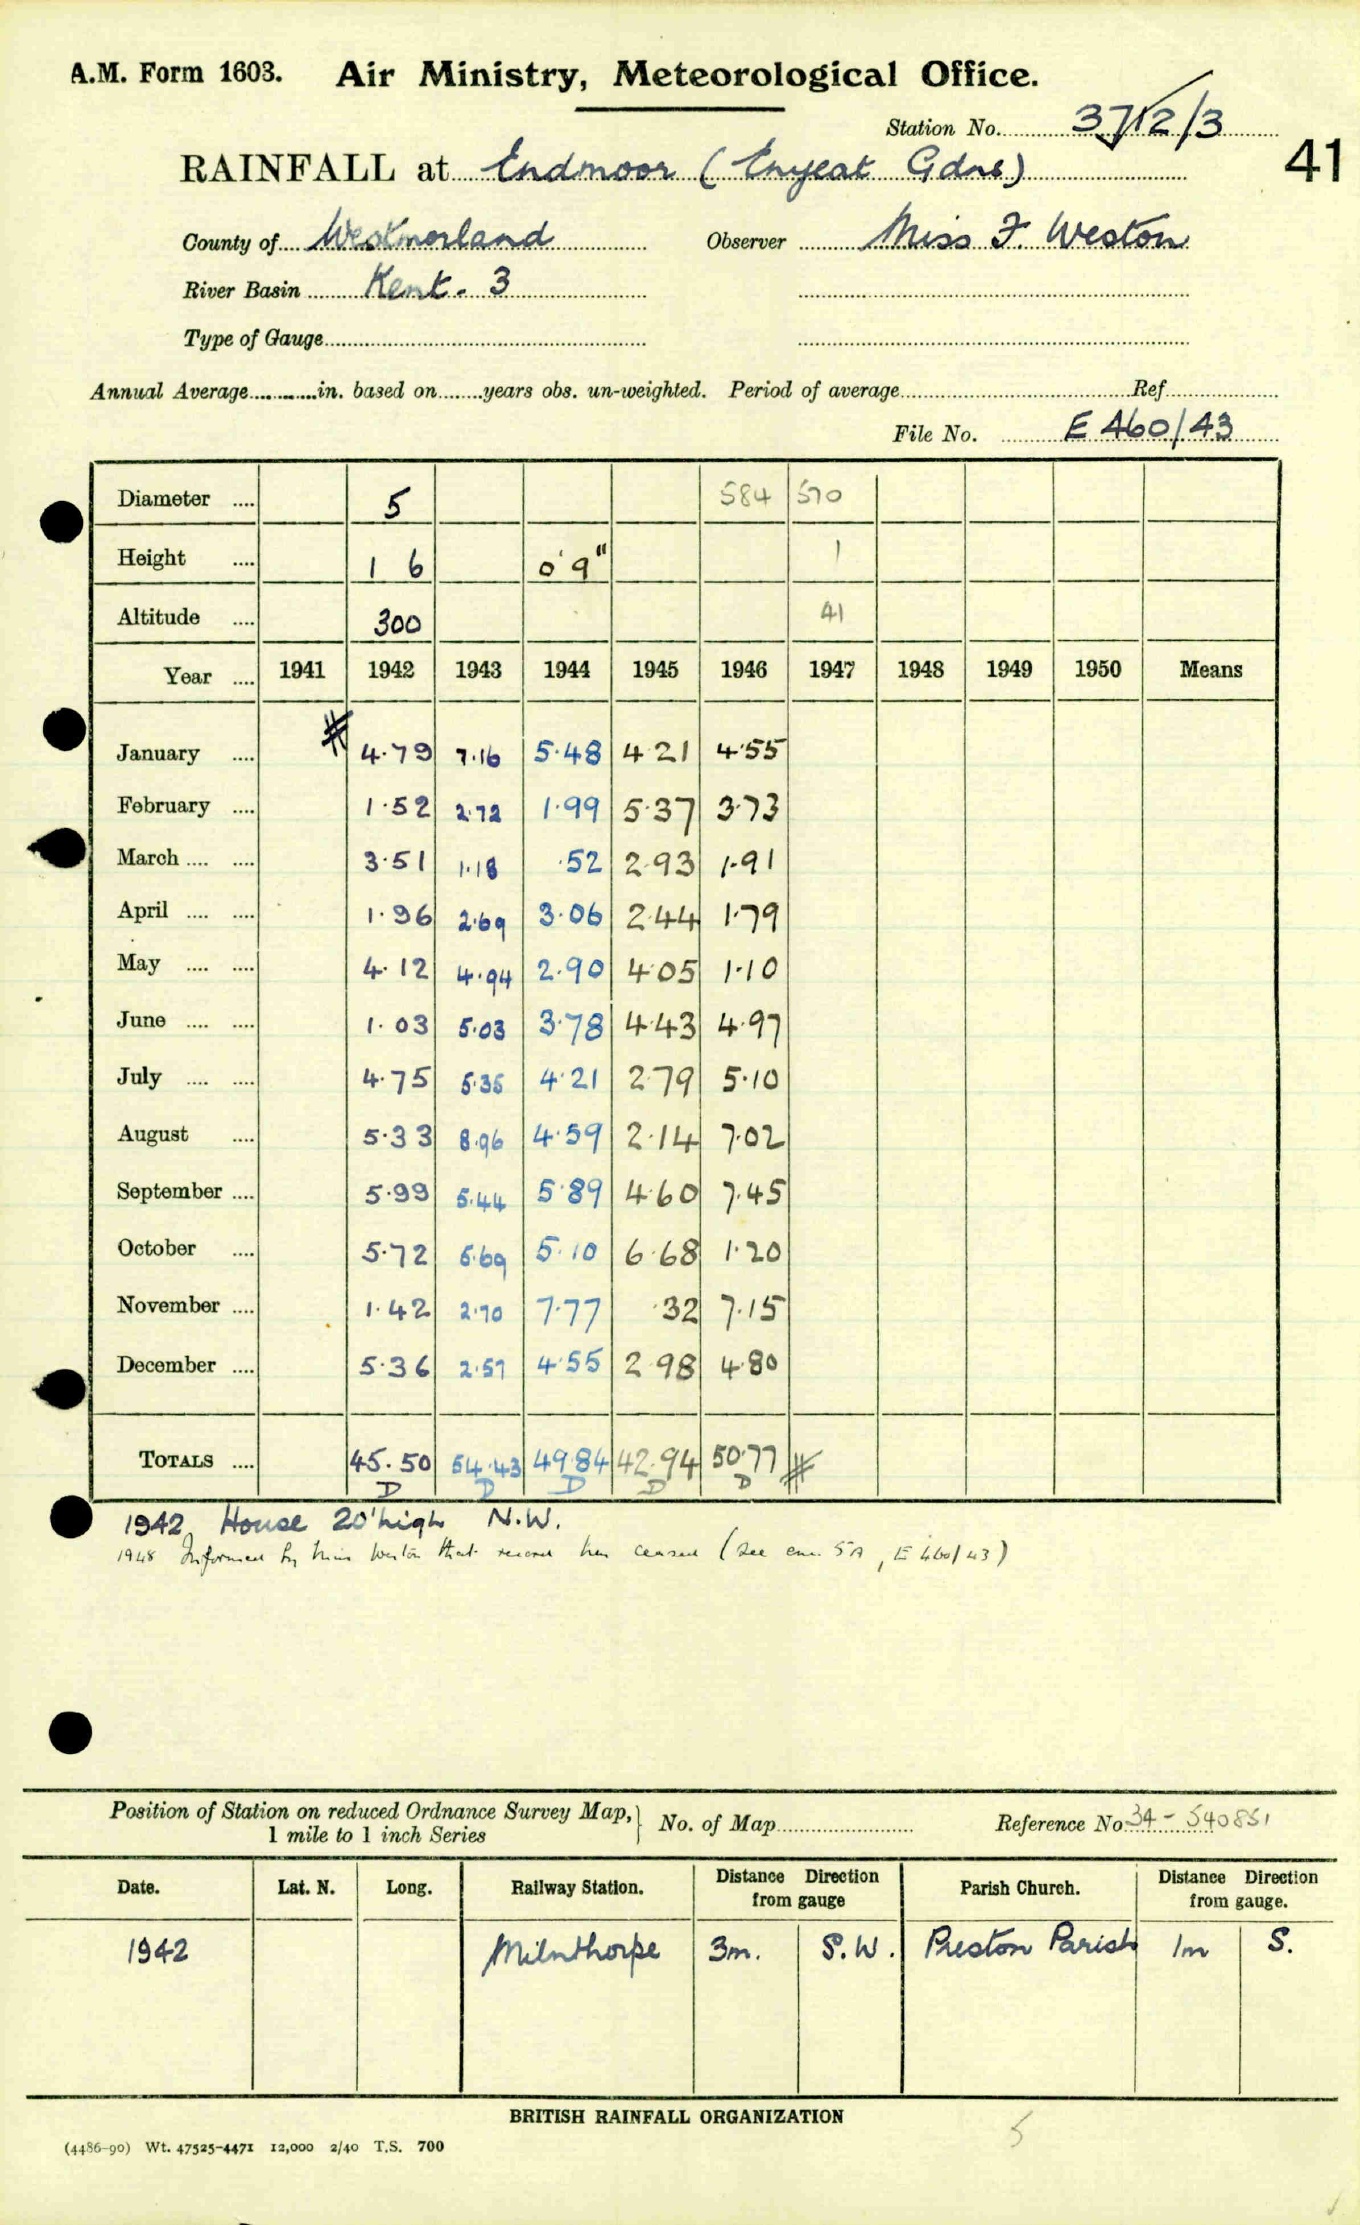 A.M. Form 1603. Air Ministry, Meteorological Office.
Station No. 3712/3
RAINFALL at Endmoor (Enyeat Gdns)
41
County of Westmorland Observer Miss F. Weston
River Basin Kent. 3
Type of Gauge
Annual Average in. based on years obs. un-weighted. Period of average Ref.
File No. E 460/43
Diameter 5 584 570
Height 1 6 0' 9" 1
Altitude 300 41
Year 1941 1942 1943 1944 1945 1946 1947 1948 1949 1950 Means
January 4.79 7.16 5.48 4.21 4.55
February 1.52 2.72 1.99 5.37 3.73
March 3.51 1.18 .52 2.93 1.91
April 1.96 2.69 3.06 2.44 1.79
May 4.12 4.94 2.90 4.05 1.10
June 1.03 5.03 3.78 4.43 4.97
July 4.75 5.35 4.21 2.79 5.10
August 5.33 8.96 4.59 2.14 7.02
September 5.99 5.44 5.89 4.60 7.45
October 5.72 5.69 5.10 6.68 1.20
November 1.42 2.70 7.77 .32 7.15
December 5.36 2.57 4.55 2.98 4.80
TOTALS 45.50 54.43 49.84 42.94 50.77
D D D D D
1942 House 20' high N.W.
1948 Informed by Miss Weston that record has ceased (see enc. 5A, E 460/43)
Position of Station on reduced Ordnance Survey Map, 1 mile to 1 inch Series } No. of Map Reference No 34 - 540851
Date. Lat. N. Long. Railway Station. Distance Direction from gauge Parish Church. Distance Direction from gauge.
1942 Milnthorpe 3m. S.W. Preston Parish 1m S.
BRITISH RAINFALL ORGANIZATION
5
(4486-90) Wt. 47525-4471 12,000 2/40 T.S. 700